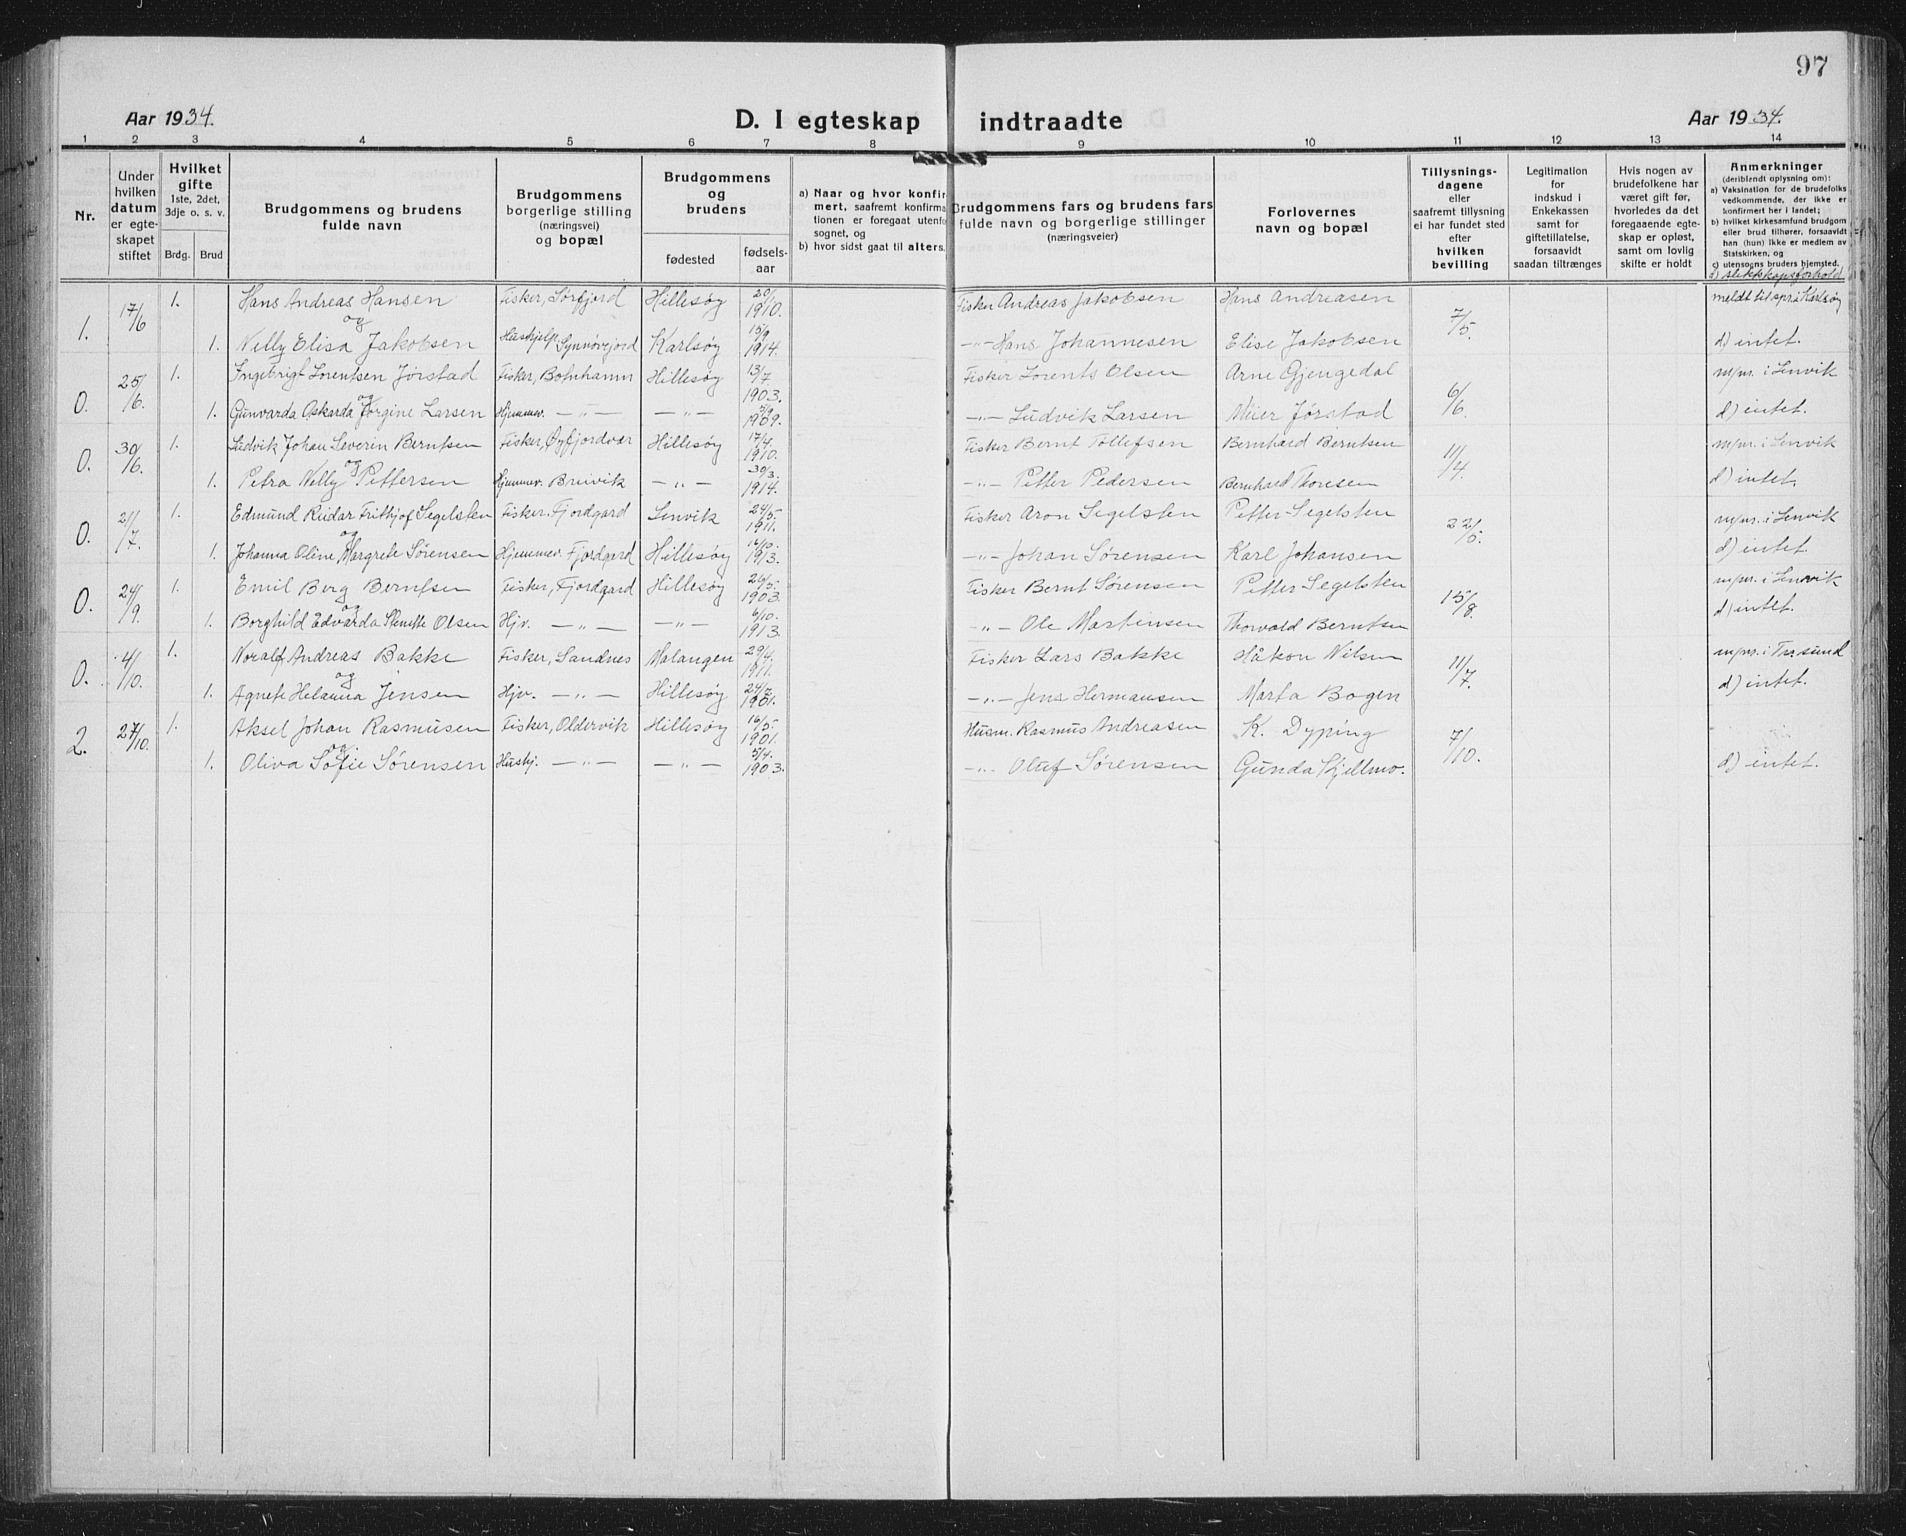 97
Aar 1934. D. I egteskap indtraadte Aar 1934.
1 2 3 4 5 6 7 8 9 10 11 12 13 14
Nr.
Under hvilken datum er egteskapet stiftet
Hvilket gifte 1ste, 2det, 3dje o. s. v.
Brdg. Brud
Brudgommens og brudens fulde navn
Brudgommens borgerlige stilling (næringsvei) og bopæl
Brudgommens og brudens
fødested fødselsaar
a) Naar og hvor konfirmert, saafremt konfirmationen er foregaat utenfor sognet, og
b) hvor sidst gaat til alters.
Brudgommens fars og brudens fars fulde navn og borgerlige stillinger (næringsveier)
Forlovernes navn og bopæl
Tillysningsdagene eller saafremt tillysning ei har fundet sted efter hvilken bevilling
Legitimation for indskud i Enkekassen samt for giftetillatelse, forsaavidt saadan tiltrænges
Hvis nogen av brudefolkene har været gift før, hvorledes da det foregaaende egteskap er opløst, samt om lovlig skifte er holdt
Anmerkninger
(deriblandt oplysning om):
a) Vaksination for de brudefolks vedkommende, der ikke er konfirmert her i landet;
b) hvilket kirkesamfund brudgom eller brud tilhører, forsaavidt han (hun) ikke er medlem av Statskirken, og
c) utensogns bruders hjemsted.
d) slektskapsforhold
1. 17/6 1. Hans Andreas Hansen Fisker, Sørfjord Hillesøy 20/10 1910. Fisker Andreas Jakobsen Hans Andreasen 7/5. meldt til spr. i Karlsøy
og
1. Nelly Elisa Jakobsen Hushjelp Synnøvejord Karlsøy 15/9 1914. -"- Hans Johannesen Elise Jakobsen d) intet.
0. 25/6. 1. Ingebrigt Lorentsen Jørstad Fisker, Botnhamn Hillesøy 13/7 1903. Fisker Lorents Olsen Arne Gjengedal 6/6. m/pr. i Lenvik
og
1. Gunvarda Oskarda Jørgine Larsen Hjemmev. -"- -"- 5/9 1909. -"- Ludvik Larsen Meier Jørstad d) intet.
0. 30/6. 1. Ludvik Johan Severin Berntsen Fisker, Øyfjordvær Hillesøy 17/4 1910. Fisker Bernt Tollefsen Bernhard Berntsen 11/4. m/pr. i Lenvik
og
1. Petra Nelly Pettersen Hjemmev. Breivik -"- 30/3. 1914. -"- Petter Pedersen Bernhard Thoresen d) intet.
0. 21/7. 1. Edmund Reidar Frithjof Segelsten Fisker, Fjordgard Lenvik 24/5 1911. Fisker Aron Segelsten Petter Segelsten 22/5. m/pr. i Lenvik
og
1. Johanna Oline Margrete Sørensen Hjemmev. Fjordgard Hillesøy 16/10 1913. -"- Johan Sørensen Karl Johansen d) intet.
0. 24/9. 1. Emil Berg Berntsen Fisker, Fjordgard Hillesøy 26/5 1903. Fisker Bernt Sørensen Petter Segelsten 15/8. m/pr. i Lenvik
og
1. Borghild Edvarda Olsen Hjv. -"- -"- 6/10. 1913. -"- Ole Martinsen Thorvald Berntsen d) intet.
0. 4/10. 1. Noralf Andreas Bakke Fisker, Sandnes Malangen 29/4 1911. Fisker Lars Bakke Håkon Nilsen 11/7. m/pr. i Trsund
og
1. Agnete Helanna Jensen Hjv. -"- Hillesøy 24/2 1901. -"- Jens Hermansen Marta Bogen d) intet.
2. 27/10. 1. Aksel Johan Rasmusen Fisker, Oldervik Hillesøy 16/5 1901. Husm. Rasmus Andreasen K. Dyping 7/10.
og
1. Oliva Sofie Sørensen Hushj. -"- -"- 5/4. 1903. -"- Oluf Sørensen Gunda Kjellmo. d) intet.